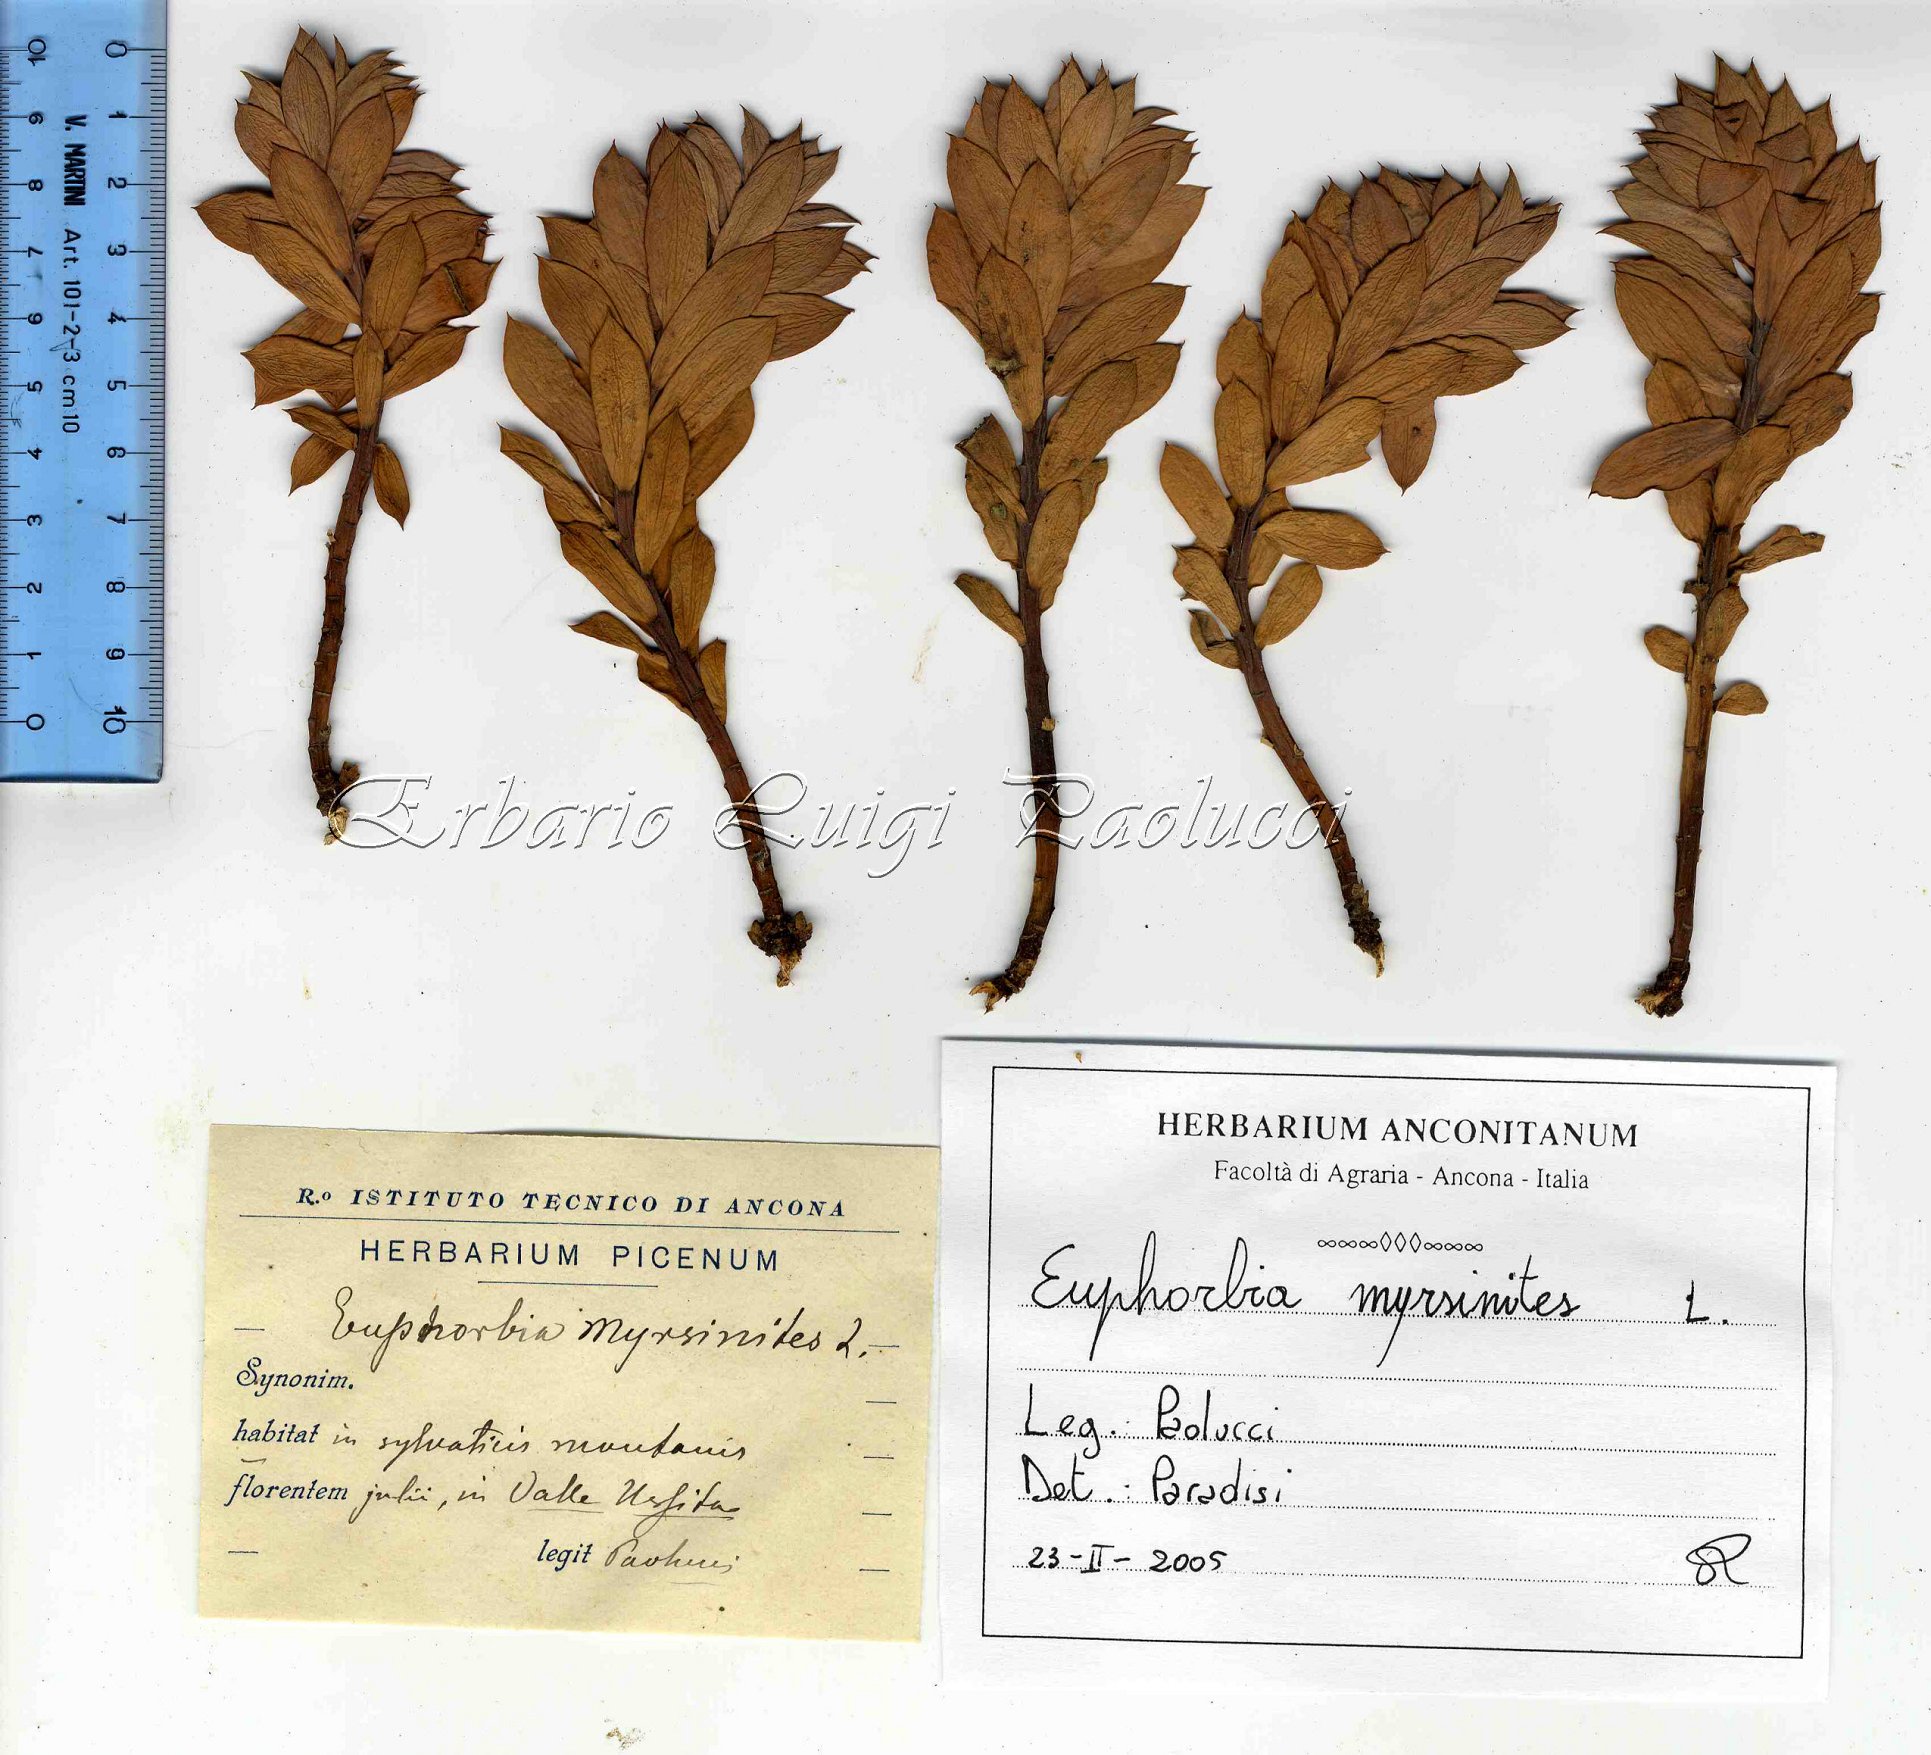 10 9 8 7 6 5 4 3 2 1 0
V. MARTINI Art. 101-2-3 cm 10
0 1 2 3 4 5 6 7 8 9 10
Erbario Luigi Paolucci
R.o ISTITUTO TECNICO DI ANCONA
HERBARIUM PICENUM
Euphorbia Myrsinites L.
Synonim.
habitat in sylvaticis montanis
florentem julii, in Valle
legit Paolucci
HERBARIUM ANCONITANUM
Facoltà di Agraria - Ancona - Italia
Euphorbia myrsinites L.
Leg.: Paolucci
Det.: Paradisi
23-II-2005